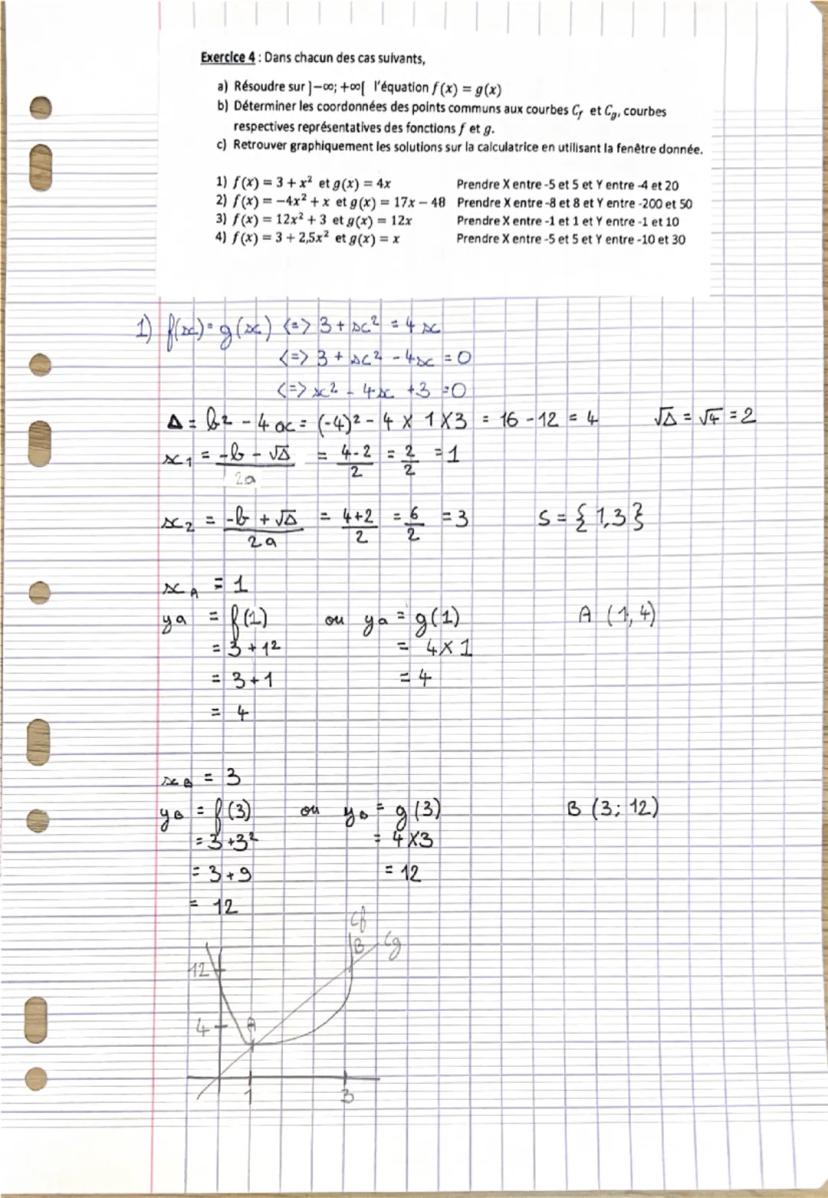 Exercice 4 : Dans chacun des cas suivants,
a) Résoudre sur ]−∞; +∞[ l'équation f(x) = g(x)
b) Déterminer les coordonnées des points communs aux courbes Cf et Cg, courbes
respectives représentatives des fonctions f et g.
c) Retrouver graphiquement les solutions sur la calculatrice en utilisant la fenêtre donnée.
1) f(x) = 3 + x² et g(x) = 4x Prendre X entre -5 et 5 et Y entre -4 et 20
2) f(x) = −4x² + x et g(x) = 17x − 48 Prendre X entre -8 et 8 et Y entre -200 et 50
3) f(x) = 12x² + 3 et g(x) = 12x Prendre X entre -1 et 1 et Y entre -1 et 10
4) f(x) = 3 + 2,5x² et g(x) = x Prendre X entre -5 et 5 et Y entre -10 et 30
1) f(x) = g(x) <=> 3 + x² = 4x
<=> 3 + x² - 4x = 0
<=> x² - 4x + 3 = 0
Δ = b² - 4ac = (-4)² - 4 × 1 × 3 = 16 - 12 = 4 √Δ = √4 = 2
x₁ = (-b - √Δ)/2a = (4-2)/2 = 2/2 = 1
x₂ = (-b + √Δ)/2a = (4+2)/2 = 6/2 = 3 S = {1,3}
xA = 1
ya = f(1) ou ya = g(1) A (1,4)
= 3 + 1² = 4 × 1
= 3 + 1 = 4
= 4
xB = 3
yB = f(3) ou yB = g(3) B (3; 12)
= 3 + 3² = 4 × 3
= 3 + 9 = 12
= 12
Cf
B Cg
12
4 A
1 3